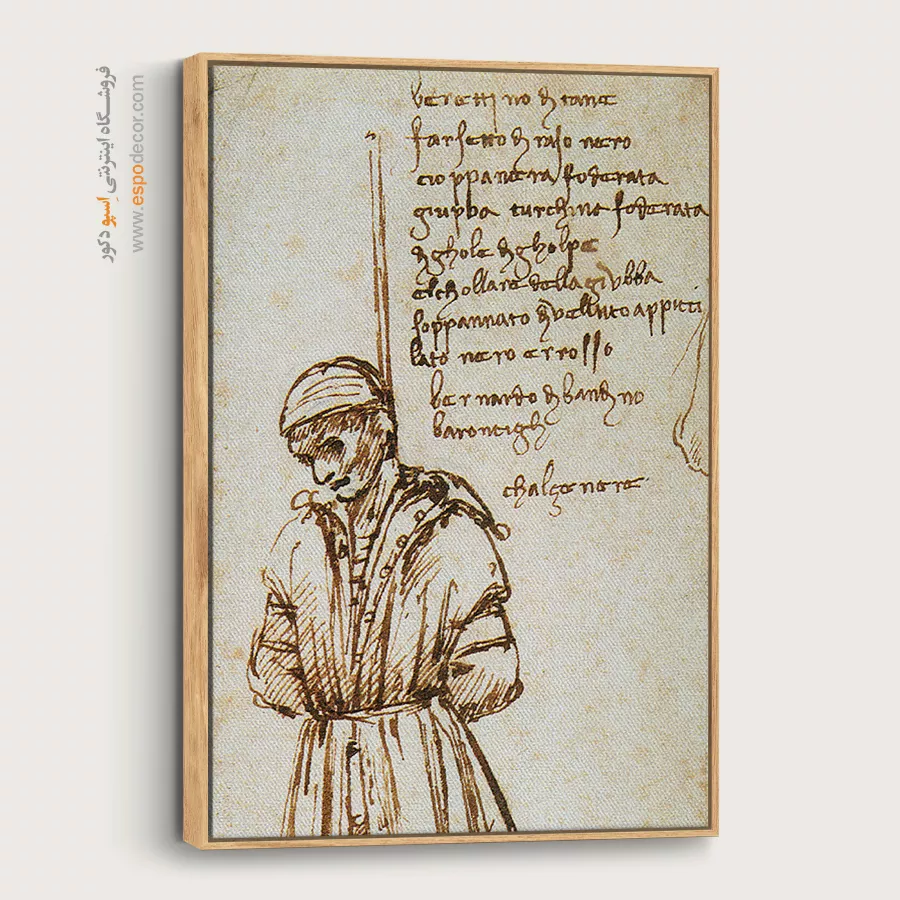 berettino di tane
farsetto di raso nero
cioppa nera foderata
giubba turchina foderata
di ghole di gholpe
elchollare della giubba
soppannato di velluto appicci
lato nero e rosso
bernardo di bandino
barontigli
chalze nere
فروشگاه اینترنتی اِسپو دکور
www.espodecor.com